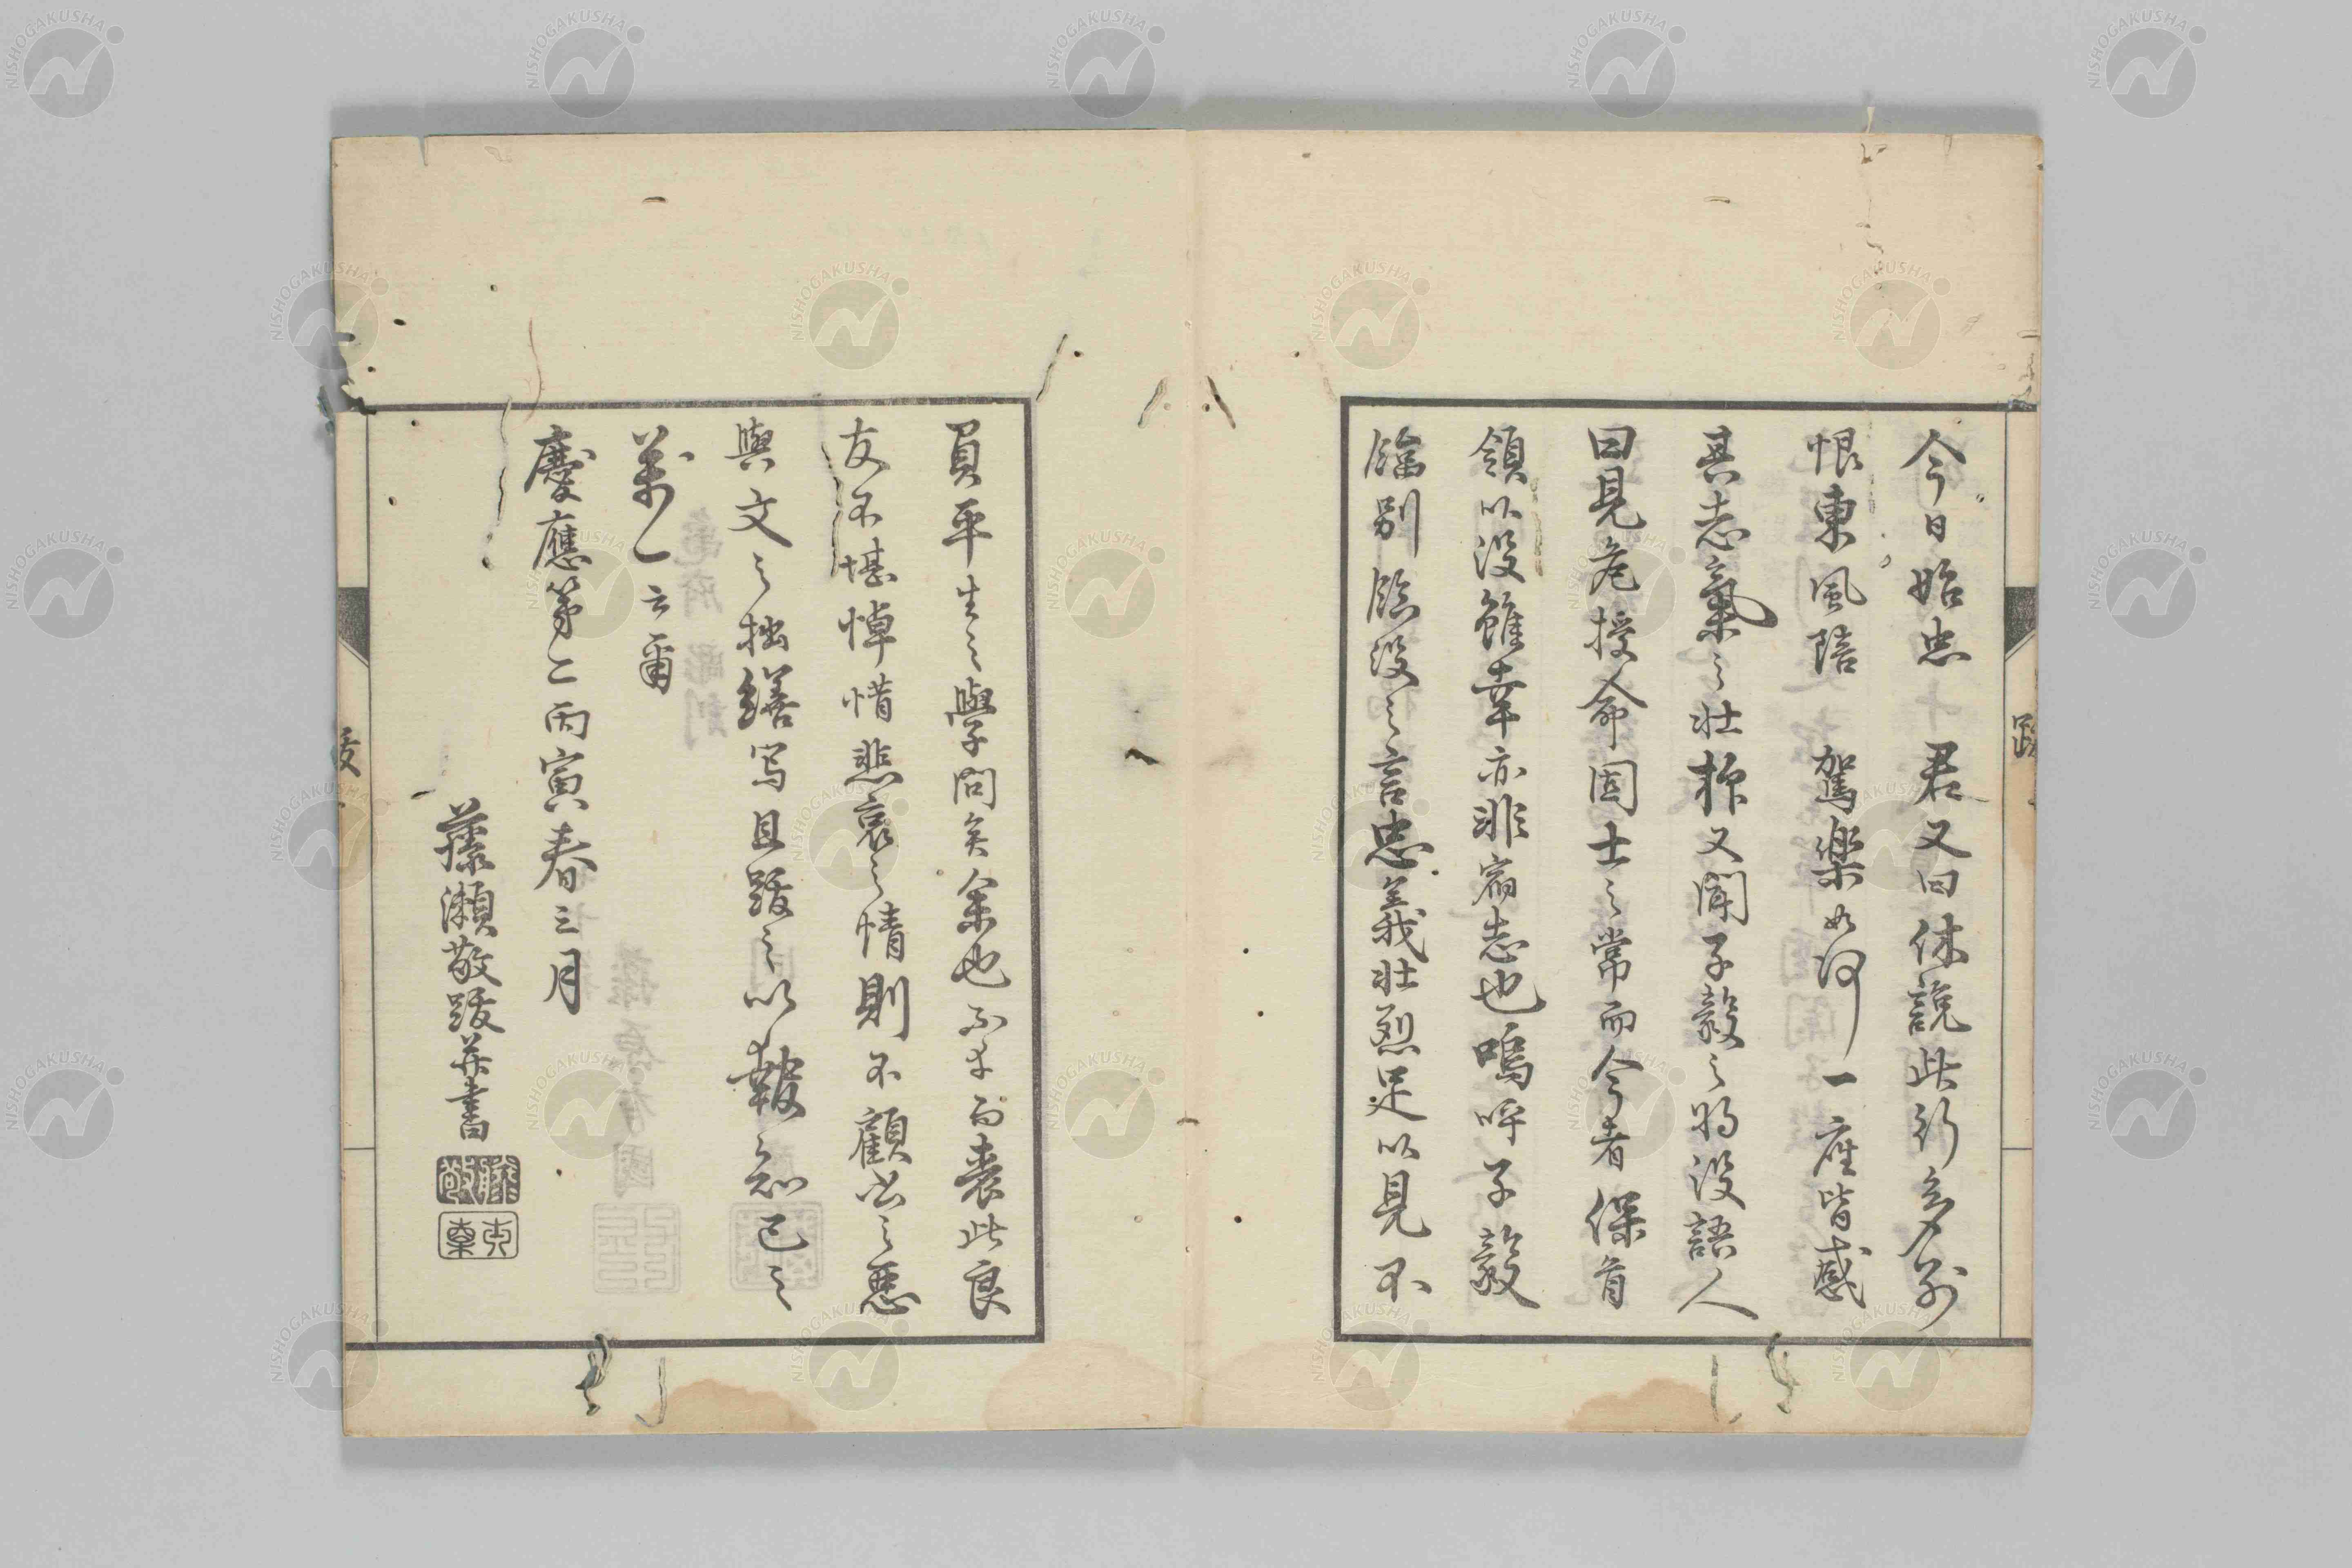 今日始忠 君又曰休說此行多別
恨東風陪 駕樂如何一座皆感
其志氣之壯抑又聞子毅之將沒語人
曰見危授命固士之常而今者保首
領以沒雖幸亦非宿志也嗚呼子毅
臨別臨沒之言忠義壯烈足以見不
負平生之學問矣余也不幸而喪此良
友不堪悼惜悲哀之情則不顧書之惡
與文之拙繕写且跋之以報知己之
萬一云爾
慶應第二丙寅春三月
藤瀬敬跋并書
跋
NISHOGAKUSHA